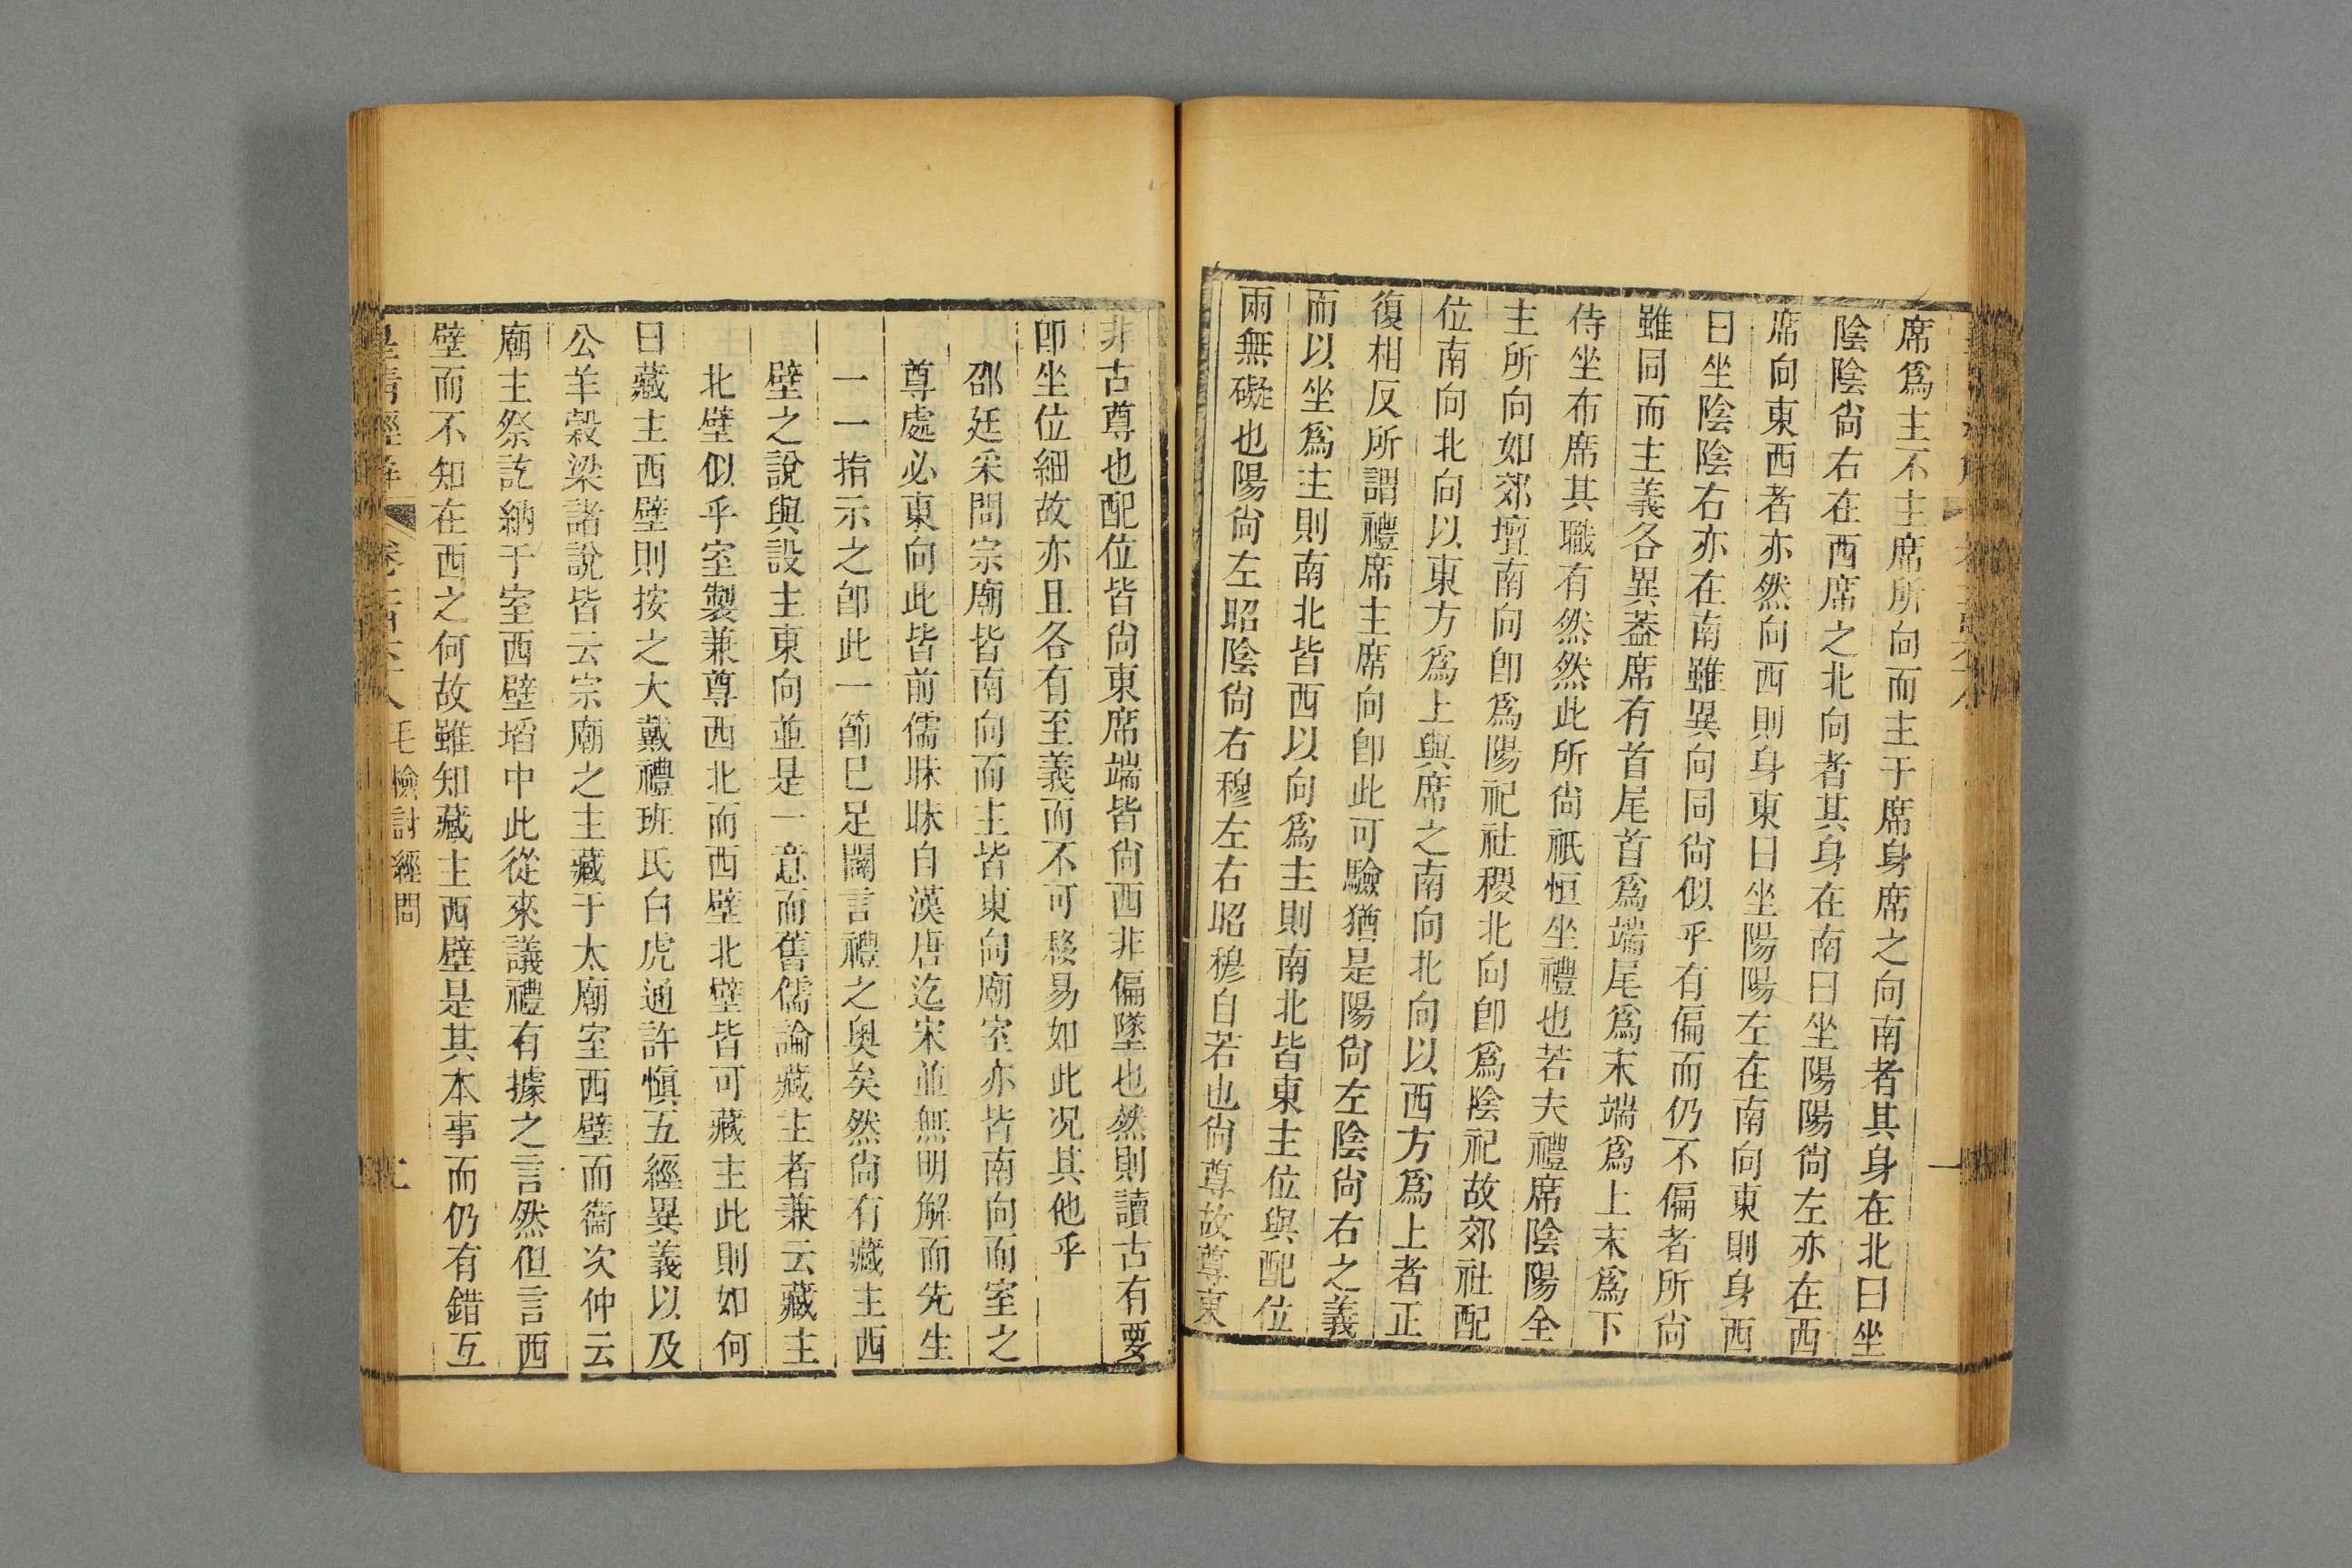 席爲主不主席所向而主于席身席之向南者其身在北曰坐
陰陰尙右在西席之北向者其身在南曰坐陽陽尙左亦在西
席向東西者亦然向西則身東曰坐陽陽左在南向東則身西
曰坐陰陰右亦在南雖異向同尙似乎有偏而仍不偏者所尙
雖同而主義各異葢席有首尾首爲端尾爲末端爲上末爲下
侍坐布席其職有然然此所尙祇恒坐禮也若夫禮席陰陽全
主所向如郊壇南向卽爲陽祀社稷北向卽爲陰祀故郊社配
位南向北向以東方爲上與席之南向北向以西方爲上者正
復相反所謂禮席主席向卽此可驗猶是陽尙左陰尙右之義
而以坐爲主則南北皆西以向爲主則南北皆東主位與配位
兩無礙也陽尙左昭陰尙右穆左右昭穆自若也尙尊故尊東
非古尊也配位皆尙東席端皆尙西非偏墜也然則讀古有要
卽坐位細故亦且各有至義而不可移易如此况其他乎
邵廷采問宗廟皆南向而主皆東向廟室亦皆南向而室之
尊處必東向此皆前儒昧昧自漢唐迄宋並無明解而先生
一一指示之卽此一節已足闡言禮之奧矣然尙有藏主西
壁之說與設主東向並是一意而舊儒論藏主者兼云藏主
北壁似乎室製兼尊西北而西壁北壁皆可藏主此則如何
曰藏主西壁則按之大戴禮班氏白虎通許愼五經異義以及
公羊穀梁諸說皆云宗廟之主藏于太廟室西壁而衞次仲云
廟主祭訖納于室西壁埳中此從來議禮有據之言然但言西
壁而不知在西之何故雖知藏主西壁是其本事而仍有錯互
毛檢討經問